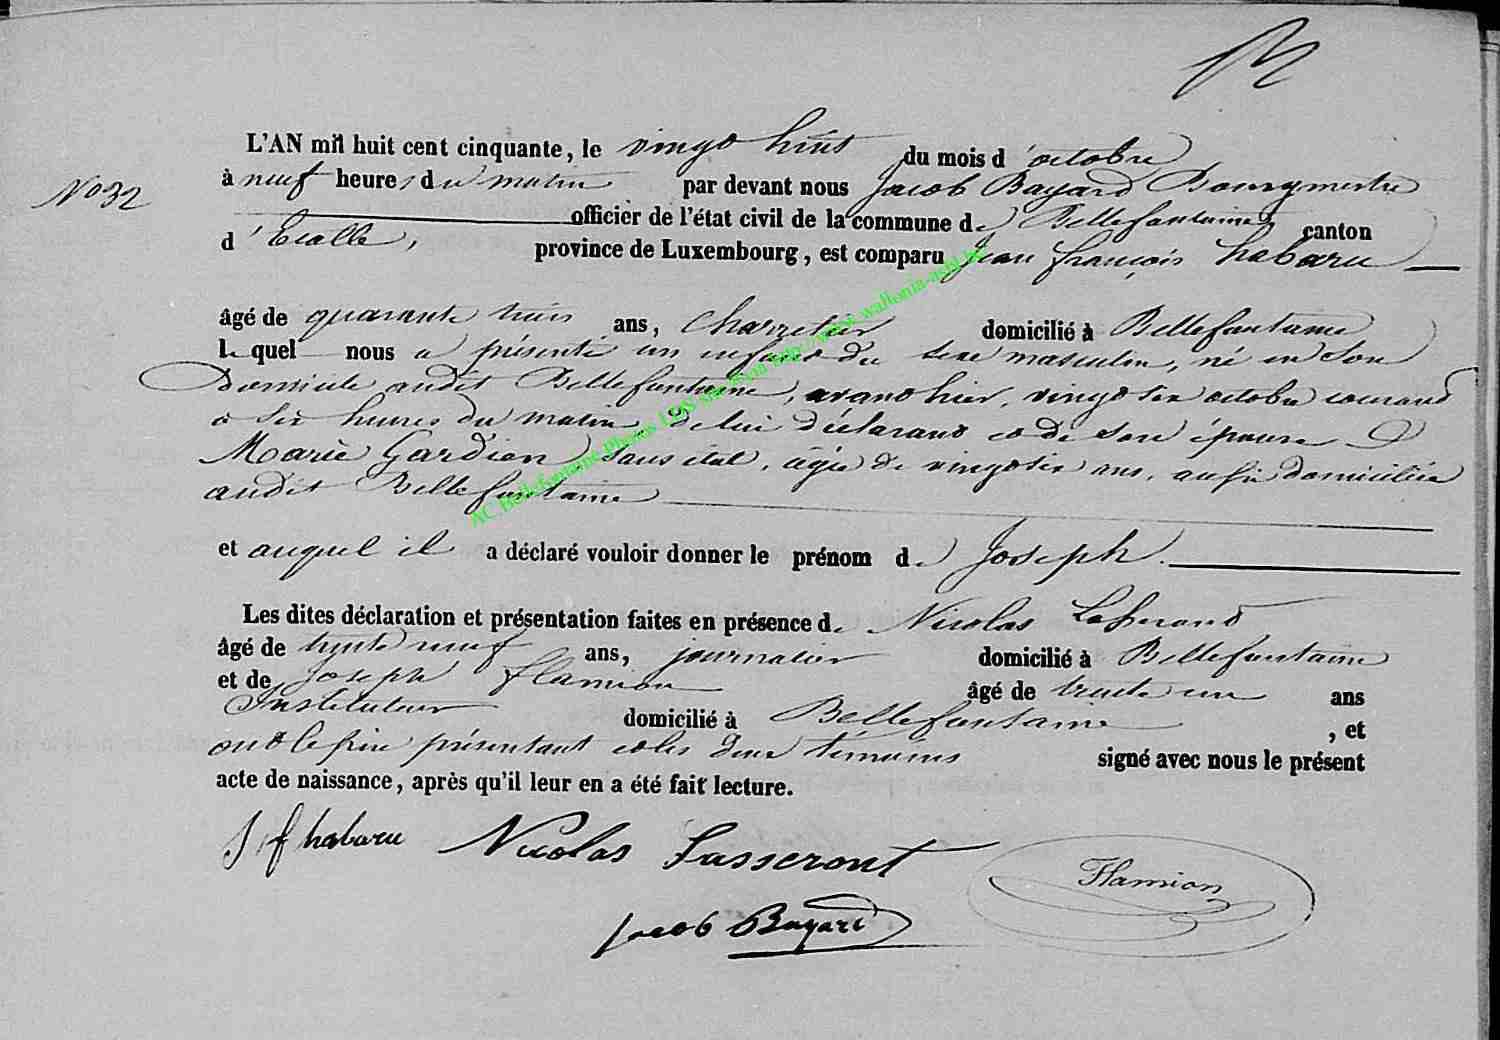 N° 32
L'AN mil huit cent cinquante, le vingt huit du mois d'octobre
à neuf heures du matin par devant nous Jacob Bayard Bourgmestre
officier de l'état civil de la commune de Bellefontaine canton
d'Etalle, province de Luxembourg, est comparu Jean françois habaru
âgé de quarante trois ans, Charretier domicilié à Bellefontaine
lequel nous a présenté un enfant du sexe masculin, né en son
Domicile audit Bellefontaine, avant hier, vingt six octobre courant
à six heures du matin, de lui déclarant et de son épouse
Marie Gardien, sans état, âgée de vingt six ans, aussi domiciliée
audit Bellefontaine
et auquel il a déclaré vouloir donner le prénom de Joseph.
Les dites déclaration et présentation faites en présence de Nicolas
âgé de trente neuf ans, journalier domicilié à Bellefontaine
et de Joseph flamion âgé de trente un ans
Instituteur domicilié à Bellefontaine, et
ont le père présentant et les deux témoins signé avec nous le présent
acte de naissance, après qu'il leur en a été fait lecture.
J f habaru Nicolas Lasseront Flamion
Jacob Bayard
AC Bellefontaine Photos LDS mis en par http://www.wallonia-asbl.be